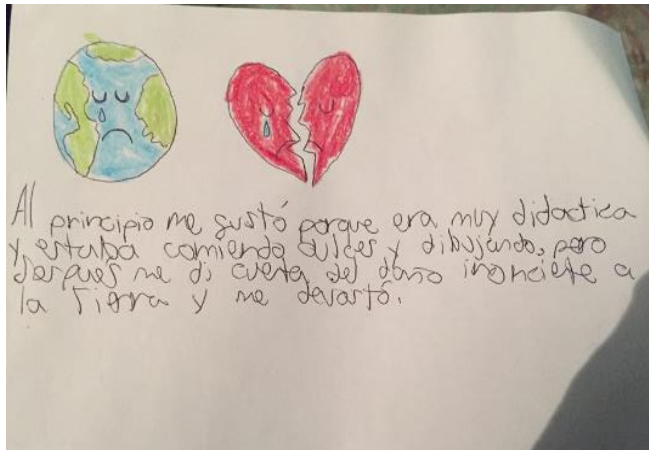 Al principio me gustó porque era muy didactica
y estaba comiendo dulces y dibujando, pero
despues me di cuenta del daño inonciete a
la Tierra y me devastó.